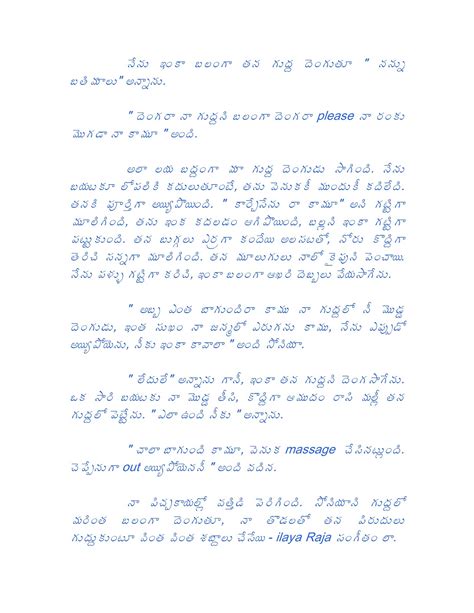 నేను ఇంకా బలంగా తన గుద్ద దెంగుతూ " నన్ను
బతిమాలు" అన్నాను.
" దెంగరా నా గుద్దని బలంగా దెంగరా please నా రంకు
మొగడా నా కామూ " అంది.
అలా లయ బద్దంగా మా గుద్ద దెంగుడు సాగింది. నేను
బయటకూ లోపలికి కదులుతూంటే, తను వెనుకకీ ముందుకీ కదిలేది.
తనకి పూర్తిగా అయ్యిపోయింది. " కార్చేసేను రా కామూ" అని గట్టిగా
మూలిగింది, తను ఇంక కదలడం ఆగిపొయింది, బల్లని ఇంకా గట్టిగా
పట్టుకుంది. తన బుగ్గలు ఎర్రగా కందేయి అలసటతో, నోరు కొద్దిగా
తెరిచి సన్నగా మూలిగింది. తన మూలుగులు నాలో కైపుని పెంచాయి.
నేను పళ్ళు గట్టిగా కరిచి, ఇంకా బలంగా ఆఖరి దెబ్బలు వేయసాగేను.
" అబ్బ ఎంత బాగుందిరా కాము నా గుద్దలో నీ మొడ్డ
దెంగుడు, ఇంత సుఖం నా జన్మలో ఎరుగను కాము, నేను ఎప్పుడో
అయ్యిపోయెను, నీకు ఇంకా కావాలా " అంది సోనియా.
" లేదులే" అన్నాను గానీ, ఇంకా తన గుద్దని దెంగసాగేను.
ఒక సారి బయటకు నా మొడ్డ తీసి, కొద్దిగా ఆముదం రాసి మల్లీ తన
గుద్దలో పెట్టేను. " ఎలా ఉంది నీకు " అన్నాను.
" చాలా బాగుంది కామూ, వెనుక massage చేసినట్లుంది.
చెప్పేనుగా out అయ్యిపోయెననీ " అంది వదిన.
నా పిచ్చకాయల్లో పత్తిడి పెరిగింది. సోనియాని గుద్దలో
మరింత బలంగా దెంగుతూ, నా తొడలతో తన పిరుదులు
గుద్దుకుంటూ వింత వింత శబ్దాలు చేసేయి - ilaya Raja సంగీతం లా.